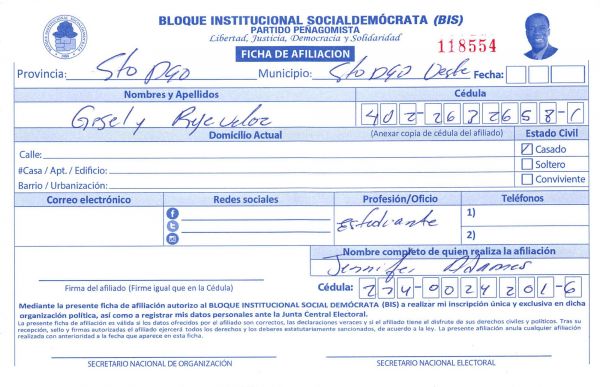 BLOQUE INSTITUCIONAL SOCIALDEMÓCRATA (BIS)
PARTIDO PEÑAGOMISTA
Libertad, Justicia, Democracia y Solidaridad
FICHA DE AFILIACION
118554
Provincia: Sto Dgo Municipio: Sto Dgo Oeste Fecha:
Nombres y Apellidos Cédula
Gisely 402-2632658-1
Domicilio Actual (Anexar copia de cédula del afiliado) Estado Civil
Calle: Casado
#Casa / Apt. / Edificio: Soltero
Barrio / Urbanización: Conviviente
Correo electrónico Redes sociales Profesión/Oficio Teléfonos
Estudiante 1)
2)
Nombre completo de quien realiza la afiliación
Jennifer Adames
Firma del afiliado (Firme igual que en la Cédula) Cédula: 224-0024201-6
Mediante la presente ficha de afiliación autorizo al BLOQUE INSTITUCIONAL SOCIAL DEMÓCRATA (BIS) a realizar mi inscripción única y exclusiva en dicha
organización política, así como a registrar mis datos personales ante la Junta Central Electoral.
La presente ficha de afiliación es válida si los datos ofrecidos por el afiliado son correctos, las declaraciones veraces y si el afiliado tiene el disfrute de sus derechos civiles y políticos. Tras su
recepción, sello y firmas autorizadas el afiliado ejercerá todos los derechos y los deberes estatutariamente sancionados, de acuerdo a la ley. La presente afiliación anula cualquier afiliación
realizada con anterioridad a la fecha que aparece en esta ficha.
SECRETARIO NACIONAL DE ORGANIZACIÓN SECRETARIO NACIONAL ELECTORAL